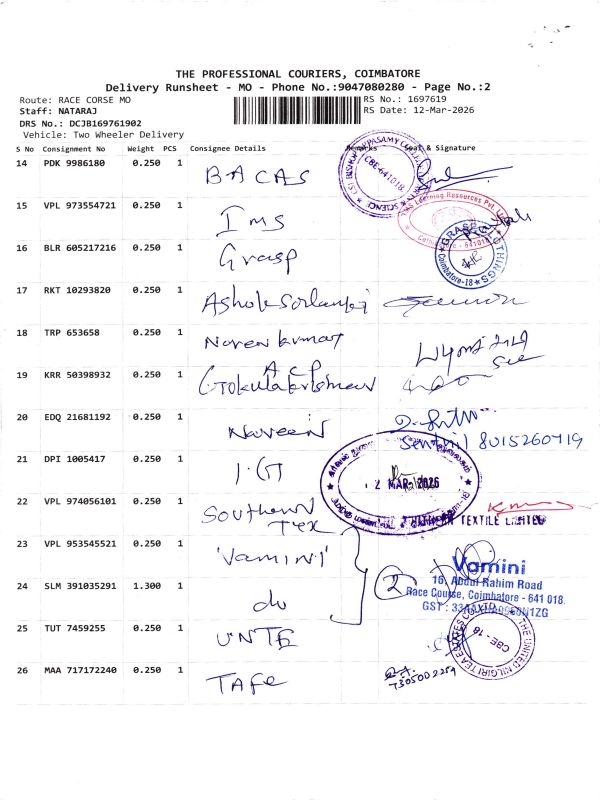 THE PROFESSIONAL COURIERS, COIMBATORE
Delivery Runsheet - MO - Phone No.:9047080280 - Page No.:2
Route: RACE CORSE MO
RS No.: 1697619
Staff: NATARAJ
RS Date: 12-Mar-2026
DRS No.: DCJB169761902
Vehicle: Two Wheeler Delivery
S No Consignment No Weight PCS Consignee Details Remarks Seal & Signature
14 PDK 9986180 0.250 1 BACAS
CBE-641018
15 VPL 973554721 0.250 1 Ims
Learning Resources Pvt.
641018
16 BLR 605217216 0.250 1 Grasp
GRASP CLOTHINGS
Coimbatore-18
17 RKT 10293820 0.250 1 Ashok Solanki
18 TRP 653658 0.250 1 Naren kumar
19 KRR 50398932 0.250 1 ACP
Gokulakrishnan
20 EDQ 21681192 0.250 1 Naveen
Senthil 8015260719
21 DPI 1005417 0.250 1 I.G
2 MAR 2026
22 VPL 974056101 0.250 1 Southern
Tex
TEXTILE LIMITED
23 VPL 953545521 0.250 1 'Vamini'
2
Vamini
16, Abdul Rahim Road
Race Course, Coimbatore - 641 018.
24 SLM 391035291 1.300 1 do
25 TUT 7459255 0.250 1 UNTE
THE UNITED NILGIRI TEA ESTATES CO. LTD
CBE - 18
26 MAA 717172240 0.250 1 TAFe
7305002259